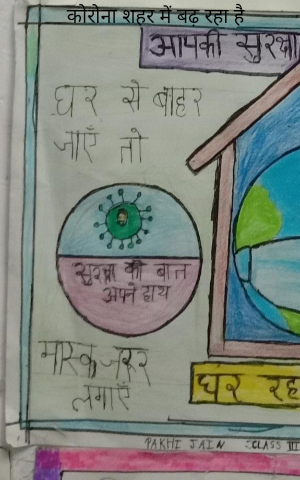 कोरोना शहर में बढ़ रहा है
आपकी सुरक्षा
घर से बाहर
जाएँ तो
सुरक्षा की बात
अपने हाथ
मास्क जरूर
लगाएँ
घर रह
PAKHI JAIN CLASS III